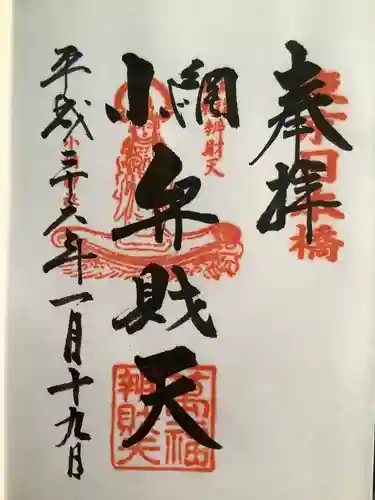 奉拝
東京日本橋
小網弁財天
辨財天
萬福
辨財天
平成二十六年一月十九日